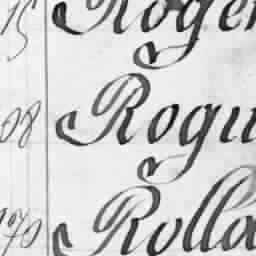 15 Roger
08 Rogu
170 Rolla